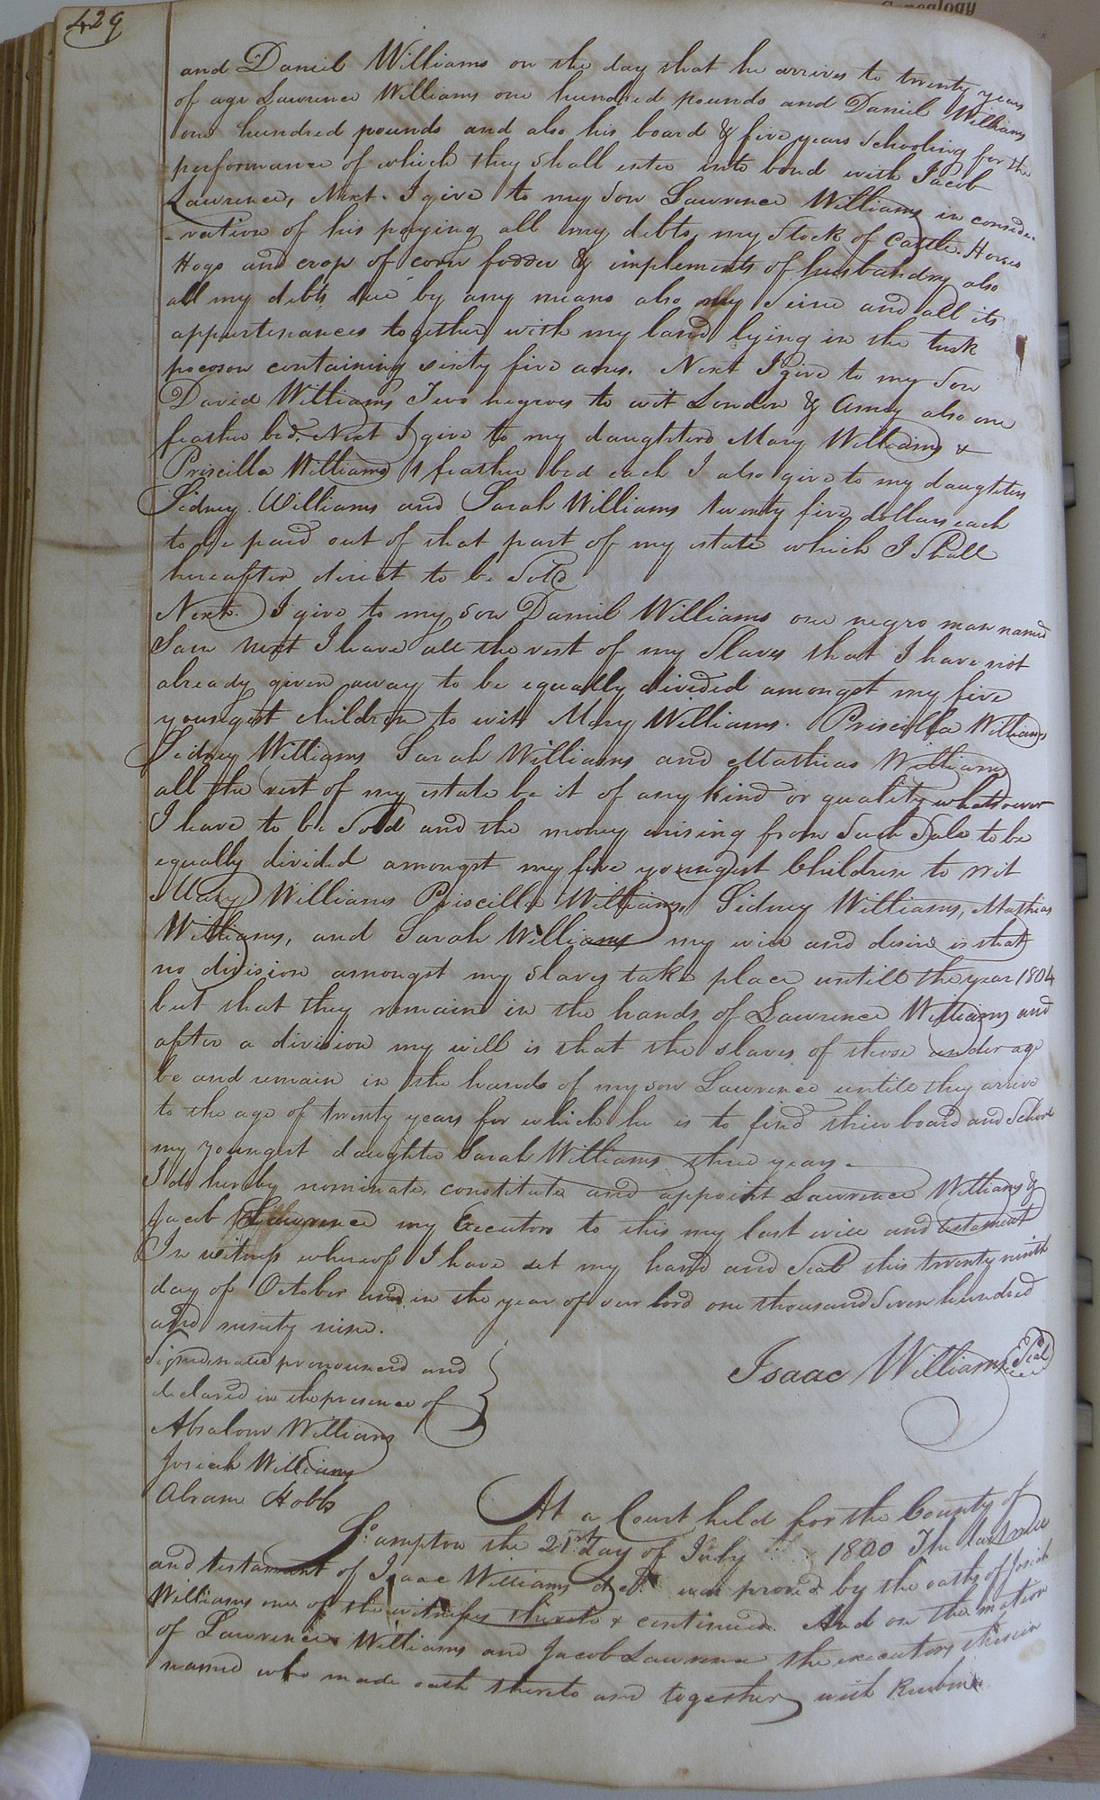 429
Genealogy
and Daniel Williams on the day that he arrives to twenty years
of age Lawrence Williams one hundred pounds and Daniel Williams
one hundred pounds and also his board & five years Schooling for the
performance of which they shall enter into bond with Jacob
Lawrence, Next. I give to my Son Lawrence Williams in conside
-ration of his paying all my debts, my Stock of Cattle. Horses
Hogs and crop of corn fodder & implements of husbandry also
all my debts due by any means also my Seine and all its
appurtenances together with my land lying in the tusk
pocoson containing sixty five acres. Next I give to my Son
David Williams Two negroes to wit London & Amey also one
feather bed. Next I give to my daughters Mary Williams &
Priscilla Williams 1 feather bed each I also give to my daughters
Sidney Williams and Sarah Williams twenty five dollars each
to be paid out of that part of my estate which I Shall
hereafter direct to be Sold
Next. I give to my Son Daniel Williams one negro man named
Sam next I leave all the rest of my Slaves that I have not
already given away to be equally divided amongst my five
youngest children to wit Mary Williams. Priscilla Williams
Sidney Williams Sarah Williams and Mathias Williams
all the rest of my estate be it of any kind or quality whatsoever
I leave to be Sold and the money arising from Such Sale to be
equally divided amongst my five youngest Children to wit
Mary Williams Priscilla Williams, Sidney Williams, Mathias
Williams, and Sarah Williams my will and desire is that
no division amongst my slaves take place untill the year 1804
but that they remain in the hands of Lawrence Williams and
after a division my will is that the slaves of those under age
be and remain in the hands of my son Lawrence untill they arrive
to the age of twenty years for which he is to find thier board and School
my youngest daughter Sarah Williams three years.
I do hereby nominate, constitute and appoint Lawrence Williams &
Jacob Lawrence my Executors to this my last will and testament
In witness whereof I have set my hand and Seal this twenty ninth
day of October and in the year of our lord one thousand Seven hundred
and ninety nine.
Signed pronounced and
declared in the presence of
Isaac Williams Seal
Absalom Williams
Josiah Williams
Abram Hobbs
At a Court held for the County of
Sampson the 21st Day of July 1800 The last will
and testament of Isaac Williams decd. was proved by the oaths of Josiah
Williams one of the witnesses thereto & continued. And on the motion
of Lawrence Williams and Jacob Lawrence the executors therein
named who made oath thereto and together with Reuben